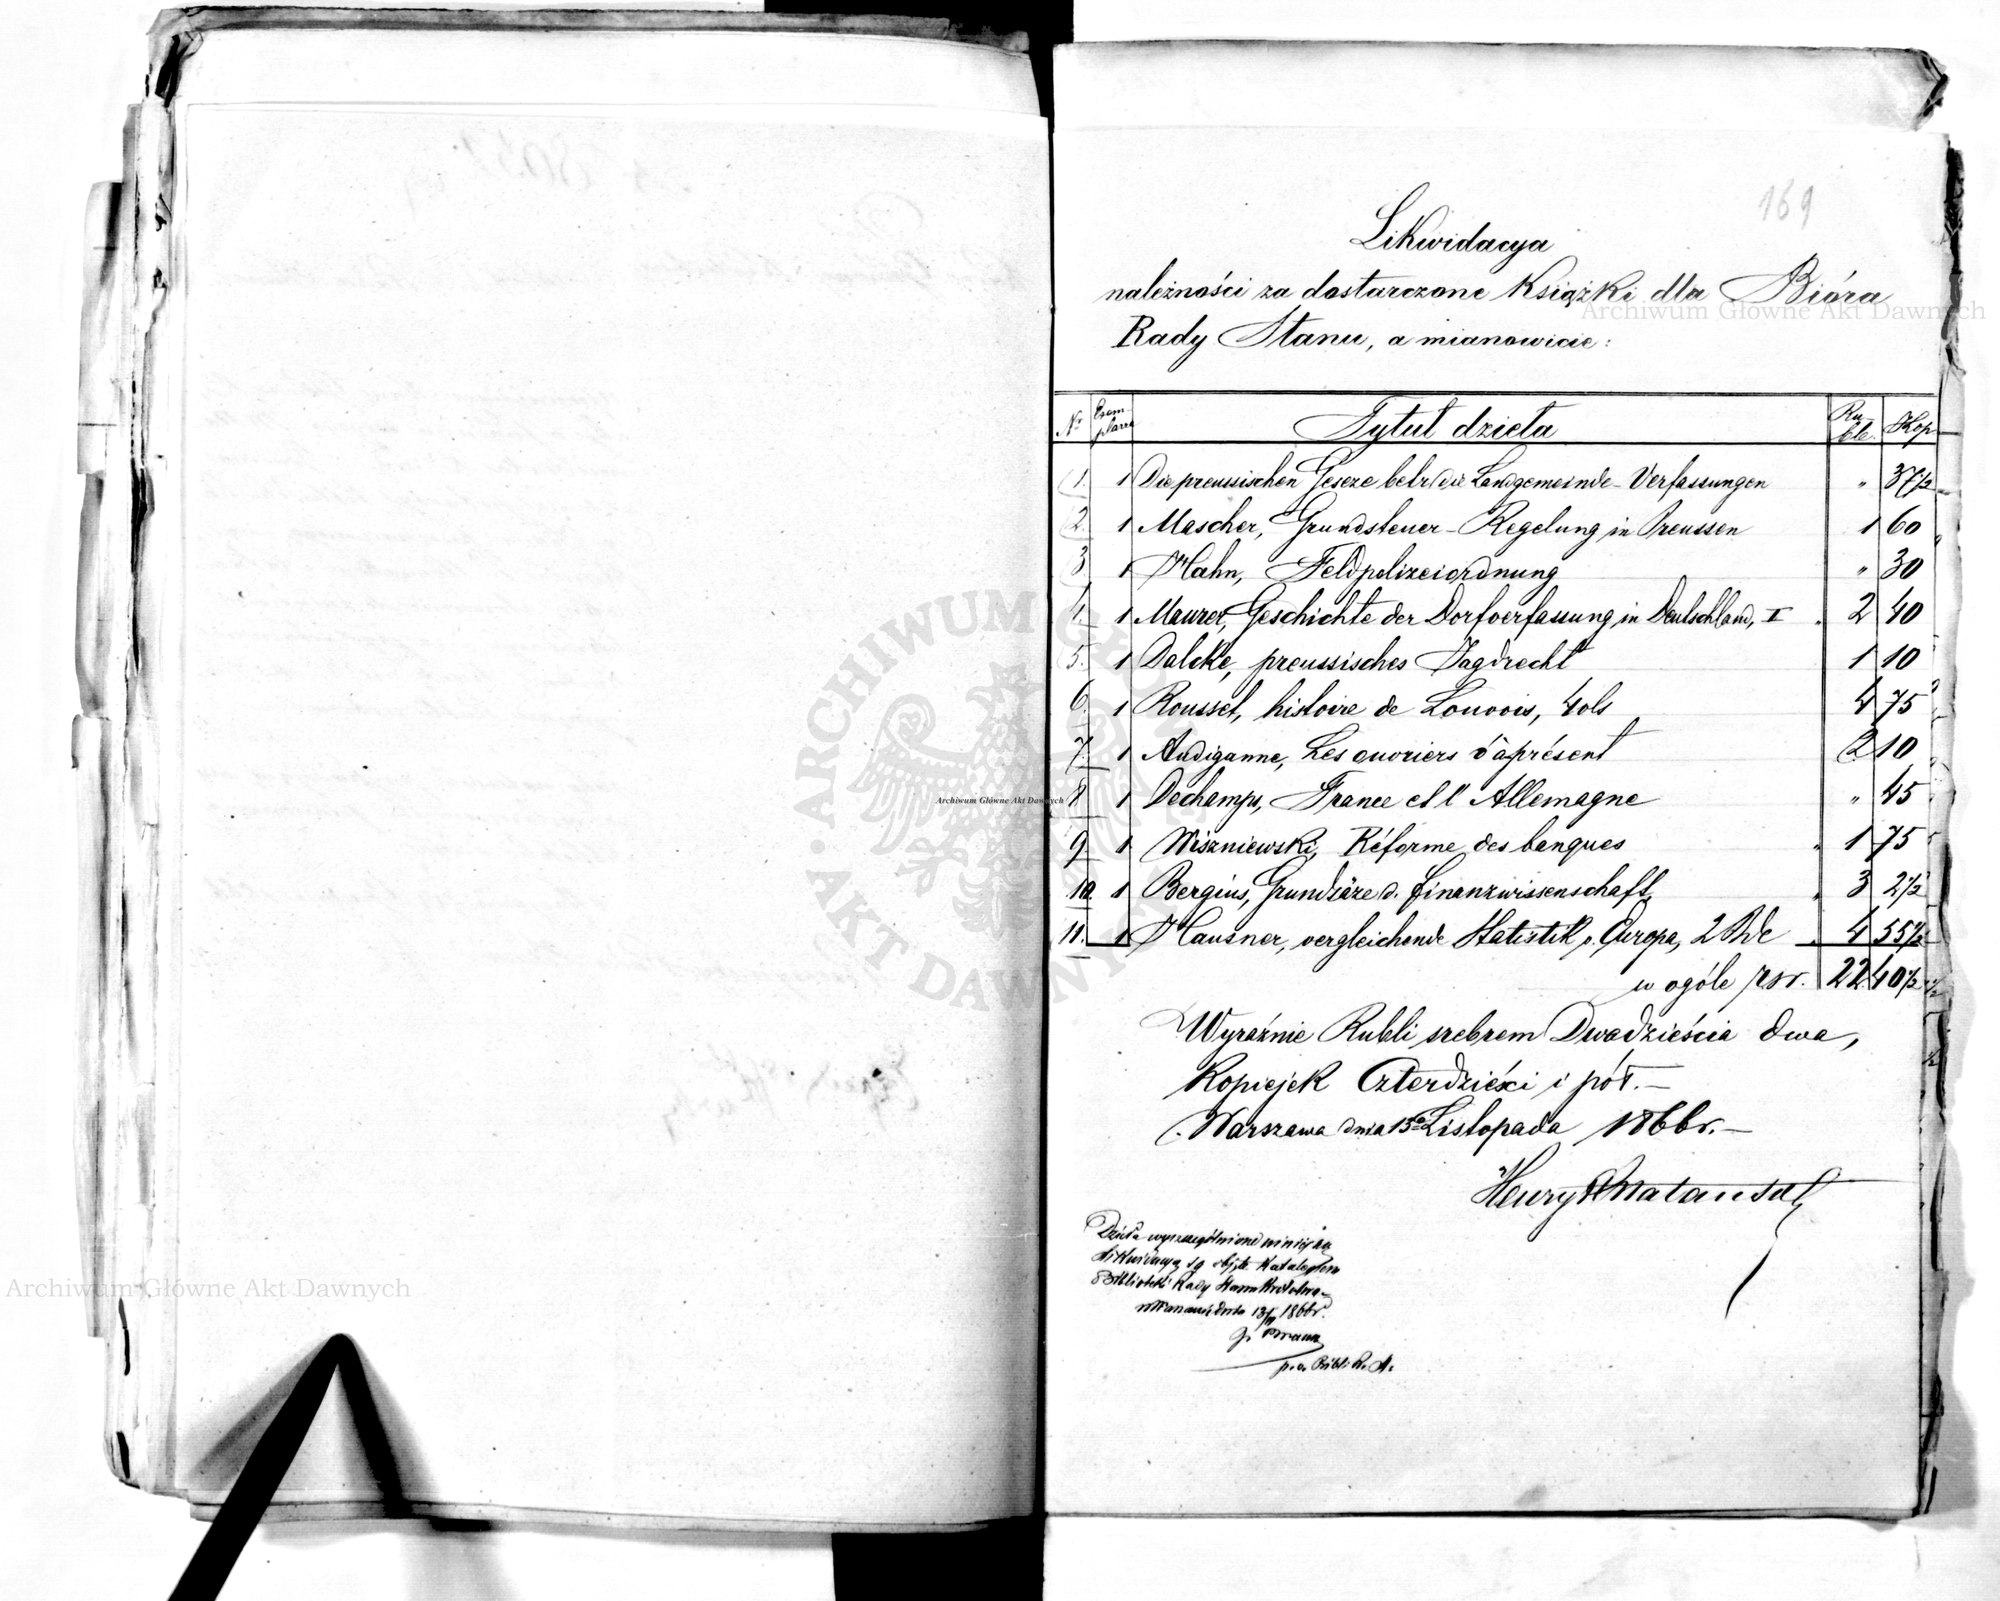 169
Likwidacya
należności za dostarczone Książki dla Bióra
Rady Stanu, a mianowicie:
№ Exemplarze Tytuł dzieła Ruble. Kop
1. 1 Die preussischen Geseze betr. die Landgemeinde-Verfassungen " 37½
2. 1 Mascher, Grundsteuer-Regelung in Preussen 1 60
3 1 Hahn, Feldpolizeiordnung " 30
4. 1 Maurer, Geschichte der Dorfverfassung in Deutschland, I 2 40
5. 1 Dalcke, preussisches Jagdrecht 1 10
6. 1 Rousset, histoire de Louvois, 4 vols 4 75
7. 1 Audiganne, Les ouvriers d'aprésent 2 10
8 1 Dechamps, France et l'Allemagne " 45
9 1 Wiszniewski, Réforme des banques 1 75
10. 1 Bergius, Grundsäze d. Finanzwissenschaft, 3 2½
11. 1 Hausner, vergleichende Statistik v. Europa, 2 Bde 4 55½
w ogóle rsr. 22 40½
Wyraźnie Rubli srebrem Dwadzieścia dwa,
Kopiejek Czterdzieści i pół.—
Warszawa dnia 15go Listopada 1866r.—
Henryk Natanson
Dzieła wyszczególnione niniejszą
Likwidacyą są objęte Katalogiem
Biblioteki Rady Stanu Królestwa
w Warszawie dnia 13/11 1866r.
p.o. Bibl. R. S.
Archiwum Główne Akt Dawnych
Archiwum Główne Akt Dawnych
Archiwum Główne Akt Dawnych
ARCHIWUM GŁÓWNE AKT DAWNYCH